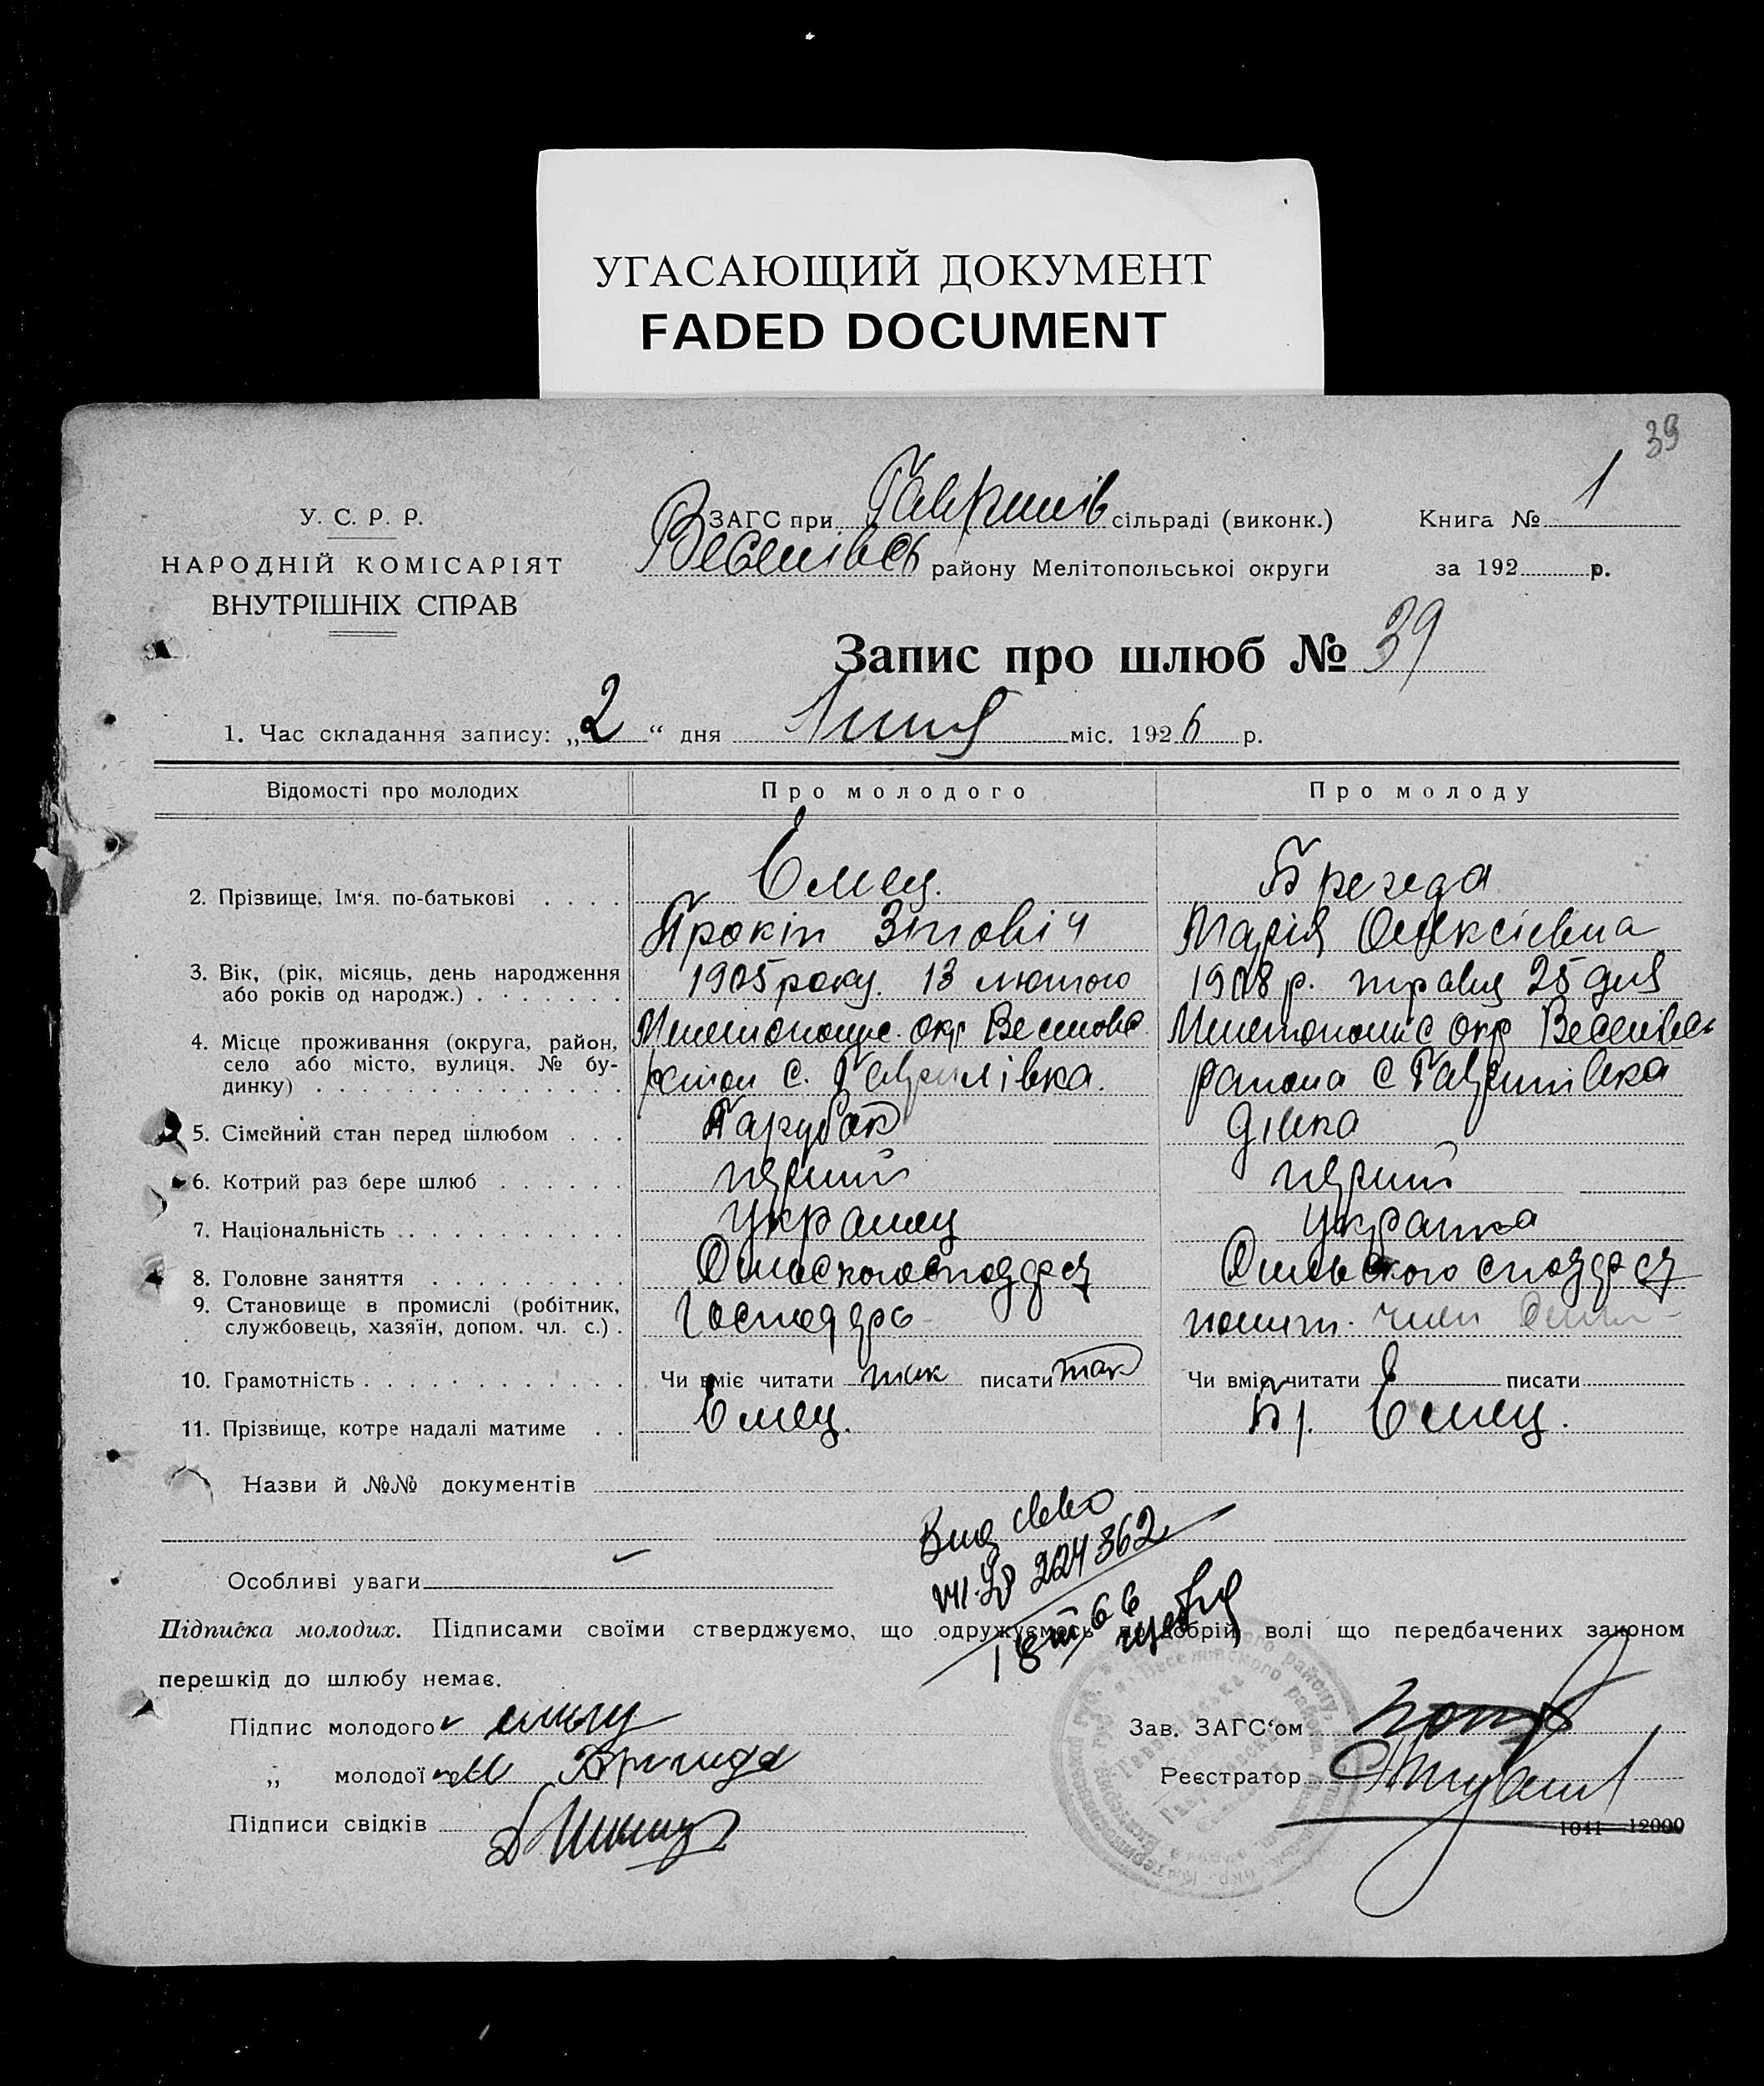 УГАСАЮЩИЙ ДОКУМЕНТ
FADED DOCUMENT
39
У. С. Р. Р.
НАРОДНІЙ КОМІСАРІЯТ
ВНУТРІШНІХ СПРАВ
ЗАГС при Гаврилів сільраді (виконк.)
Веселівсь району Мелітопольської округи
Книга № 1
за 192 р.
Запис про шлюб № 39
1. Час складання запису: „2“ дня Липня міс. 1926 р.
Відомості про молодих
Про молодого
Про молоду
2. Прізвище, Ім‘я. по-батькові
Емец.
Прокіп Зіновіч
Брегеда
Марія Олексіевна
3. Вік, (рік, місяць, день народження
або років од народж.)
1905 року. 13 лютого
1908 р. травня 25 дня
4. Місце проживання (округа, район,
село або місто, вулиця, № бу-
динку)
окр
с. Гаврилівка.
окр Веселівсь
района с Гаврилівка
5. Сімейний стан перед шлюбом
Парубок
дівка
6. Котрий раз бере шлюб
перший
перший
7. Національність
Украінец
Украінка
8. Головне заняття
9. Становище в промислі (робітник,
службовець, хазяїн, допом. чл. с.)
Господарь
член
10. Грамотність
Чи вміє читати так писати так
Чи вміє читати писати
11. Прізвище, котре надалі матиме
Емец.
Бр. Емец.
Назви й №№ документів
224362
Особливі уваги
Підписка молодих. Підписами своїми стверджуємо, що одружуємось по добрій волі що передбачених законом
перешкід до шлюбу немає.
Підпис молодого
„ молодої М Бригида
Підписи свідків
Зав. ЗАГС‘ом
Реєстратор
1041—12000